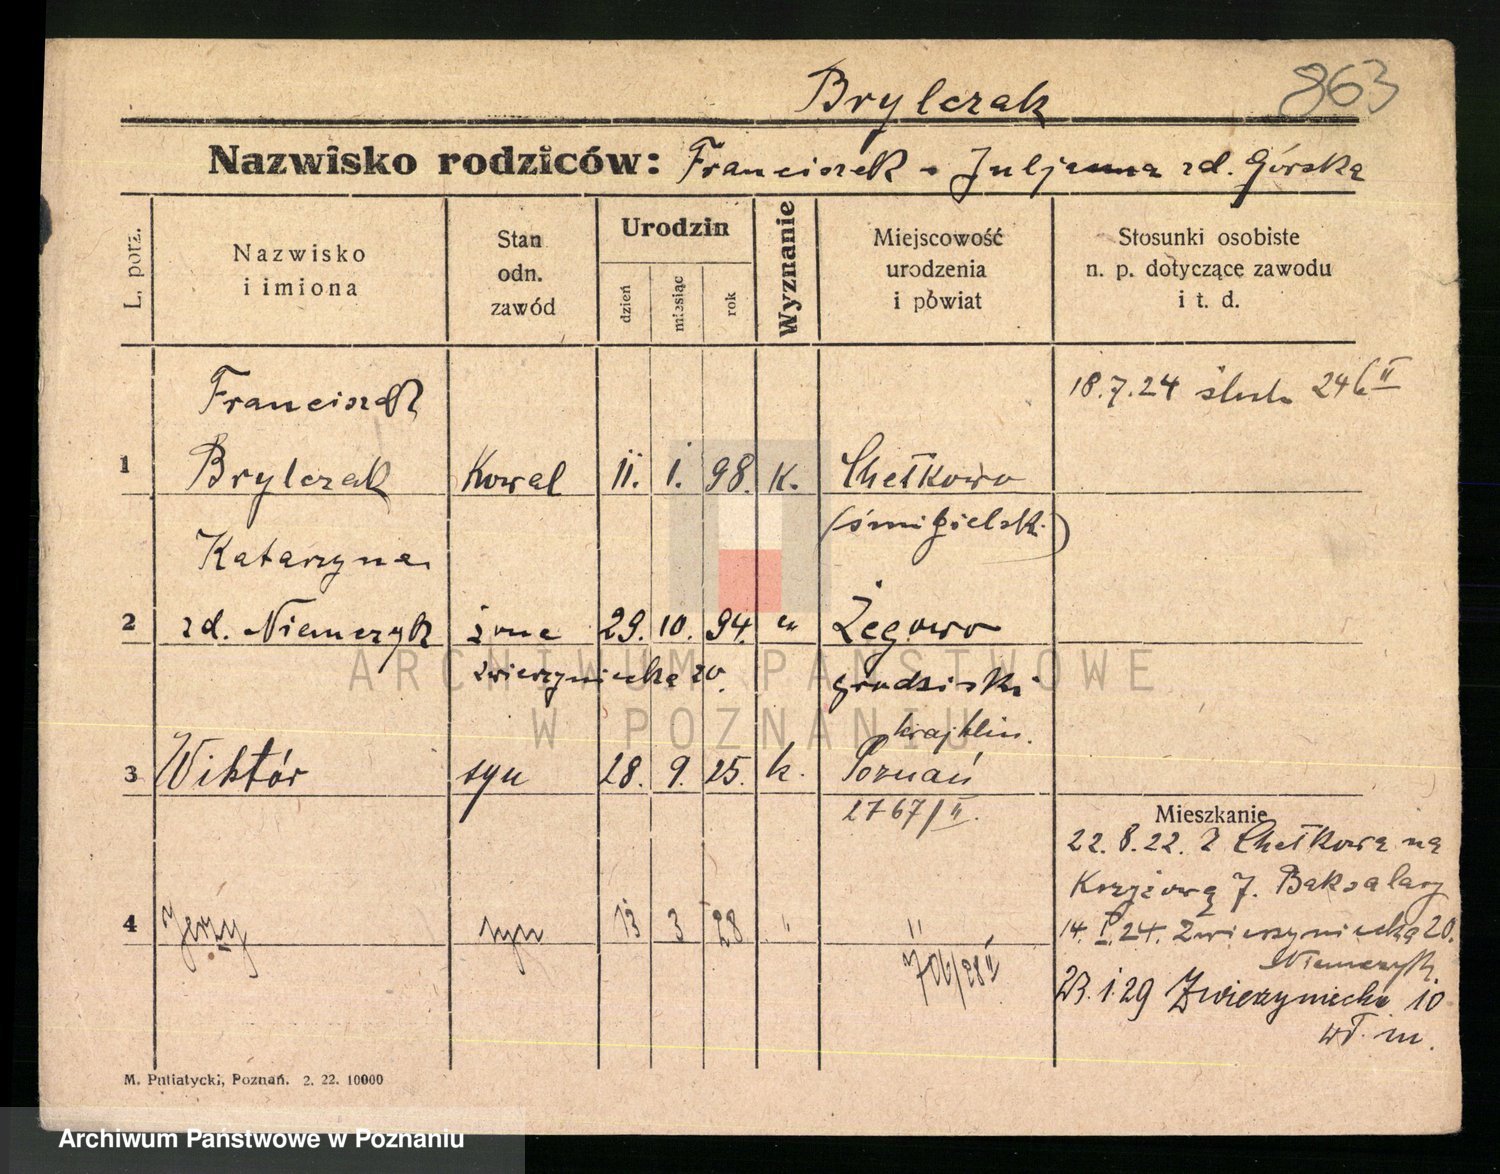 863
Brylczak
Nazwisko rodziców: Franciszek - Juljanna zd. Górska
L. porz.
Nazwisko
i imiona
Stan
odn.
zawód
Urodzin
dzień
miesiąc
rok
Wyznanie
Miejscowość
urodzenia
i powiat
Stosunki osobiste
n. p. dotyczące zawodu
i t. d.
Franciszek
18.7.24 ślub
1 Brylczak Kowal 11. 1. 98. K. Chełkowo
(śmigielski)
Katarzyna
2 zd. Niemczyk żona 29. 10. 94. " Żegowo
Zwierzyniecka 20. grodziski
3 Wiktór syn 28. 9. 25. k. Poznań
2767/II.
Mieszkanie
22. 8. 22. z Chełkowa na
Krzyżową 7. Baksalary
4 Jerzy syn 13 3 28 " "
706/28 II
14. I. 24. Zwierzyniecka 20.
Niemczyk.
23. 1. 29 Zwierzyniecka 10
wł. m.
M. Putiatycki, Poznań. 2. 22. 10000
ARCHIWUM PAŃSTWOWE
W POZNANIU
Archiwum Państwowe w Poznaniu